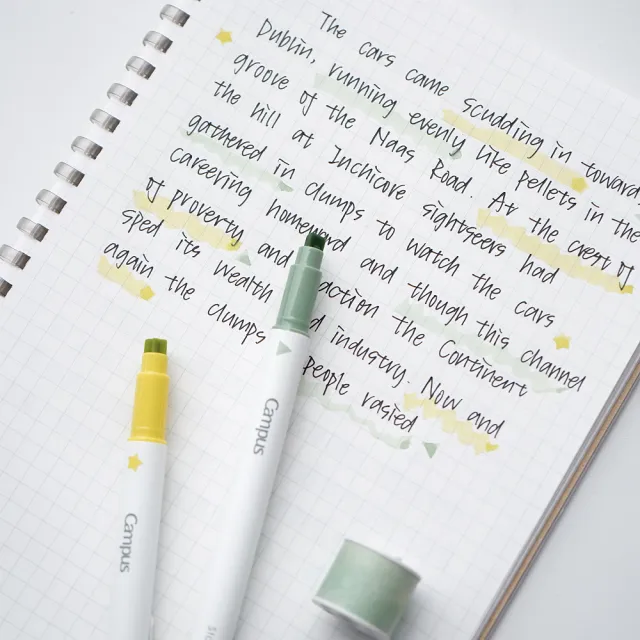 The cars came scudding in toward
Dublin, running evenly like pellets in the
groove of the Naas Road. At the crest of
the hill at Inchicore sightseers had
gathered in clumps to watch the cars
careering homeward and though this channel
of proverty and action the Continent
sped its wealth industry. Now and
again the clumps people rasied
Campus
Campus